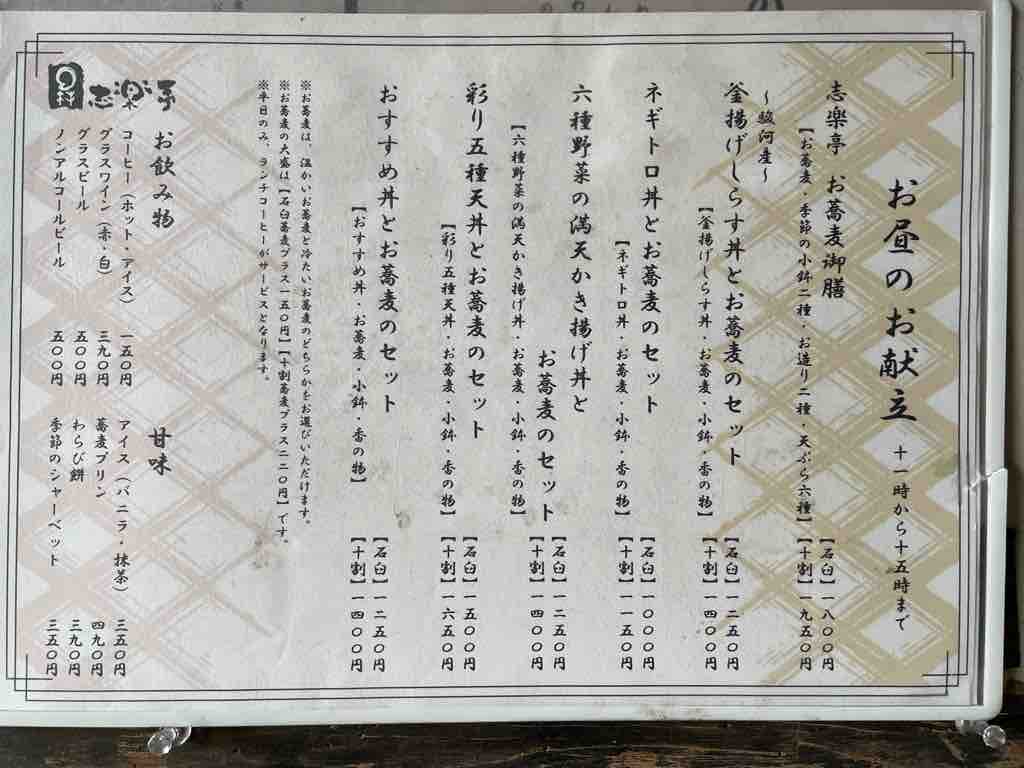 お昼のお献立 十一時から十五時まで
志楽亭 お蕎麦御膳
【お蕎麦・季節の小鉢二種・お造り二種・天ぷら六種】
【石臼】一八〇〇円
【十割】一九五〇円
～駿河産～
釜揚げしらす丼とお蕎麦のセット
【釜揚げしらす丼・お蕎麦・小鉢・香の物】
【石臼】一二五〇円
【十割】一四〇〇円
ネギトロ丼とお蕎麦のセット
【ネギトロ丼・お蕎麦・小鉢・香の物】
【石臼】一〇〇〇円
【十割】一一五〇円
六種野菜の満天かき揚げ丼と
お蕎麦のセット
【六種野菜の満天かき揚げ丼・お蕎麦・小鉢・香の物】
【石臼】一二五〇円
【十割】一四〇〇円
彩り五種天丼とお蕎麦のセット
【彩り五種天丼・お蕎麦・小鉢・香の物】
【石臼】一五〇〇円
【十割】一六五〇円
おすすめ丼とお蕎麦のセット
【おすすめ丼・お蕎麦・小鉢・香の物】
【石臼】一二五〇円
【十割】一四〇〇円
※お蕎麦は、温かいお蕎麦と冷たいお蕎麦のどちらかをお選びいただけます。
※お蕎麦の大盛は【石臼蕎麦プラス一五〇円】【十割蕎麦プラス二二〇円】です。
※平日のみ、ランチコーヒーがサービスとなります。
志楽亭
お飲み物
コーヒー（ホット・アイス） 一五〇円
グラスワイン（赤・白） 三九〇円
グラスビール 五〇〇円
ノンアルコールビール 五〇〇円
甘味
アイス（バニラ・抹茶） 三五〇円
蕎麦プリン 四九〇円
わらび餅 三九〇円
季節のシャーベット 三五〇円